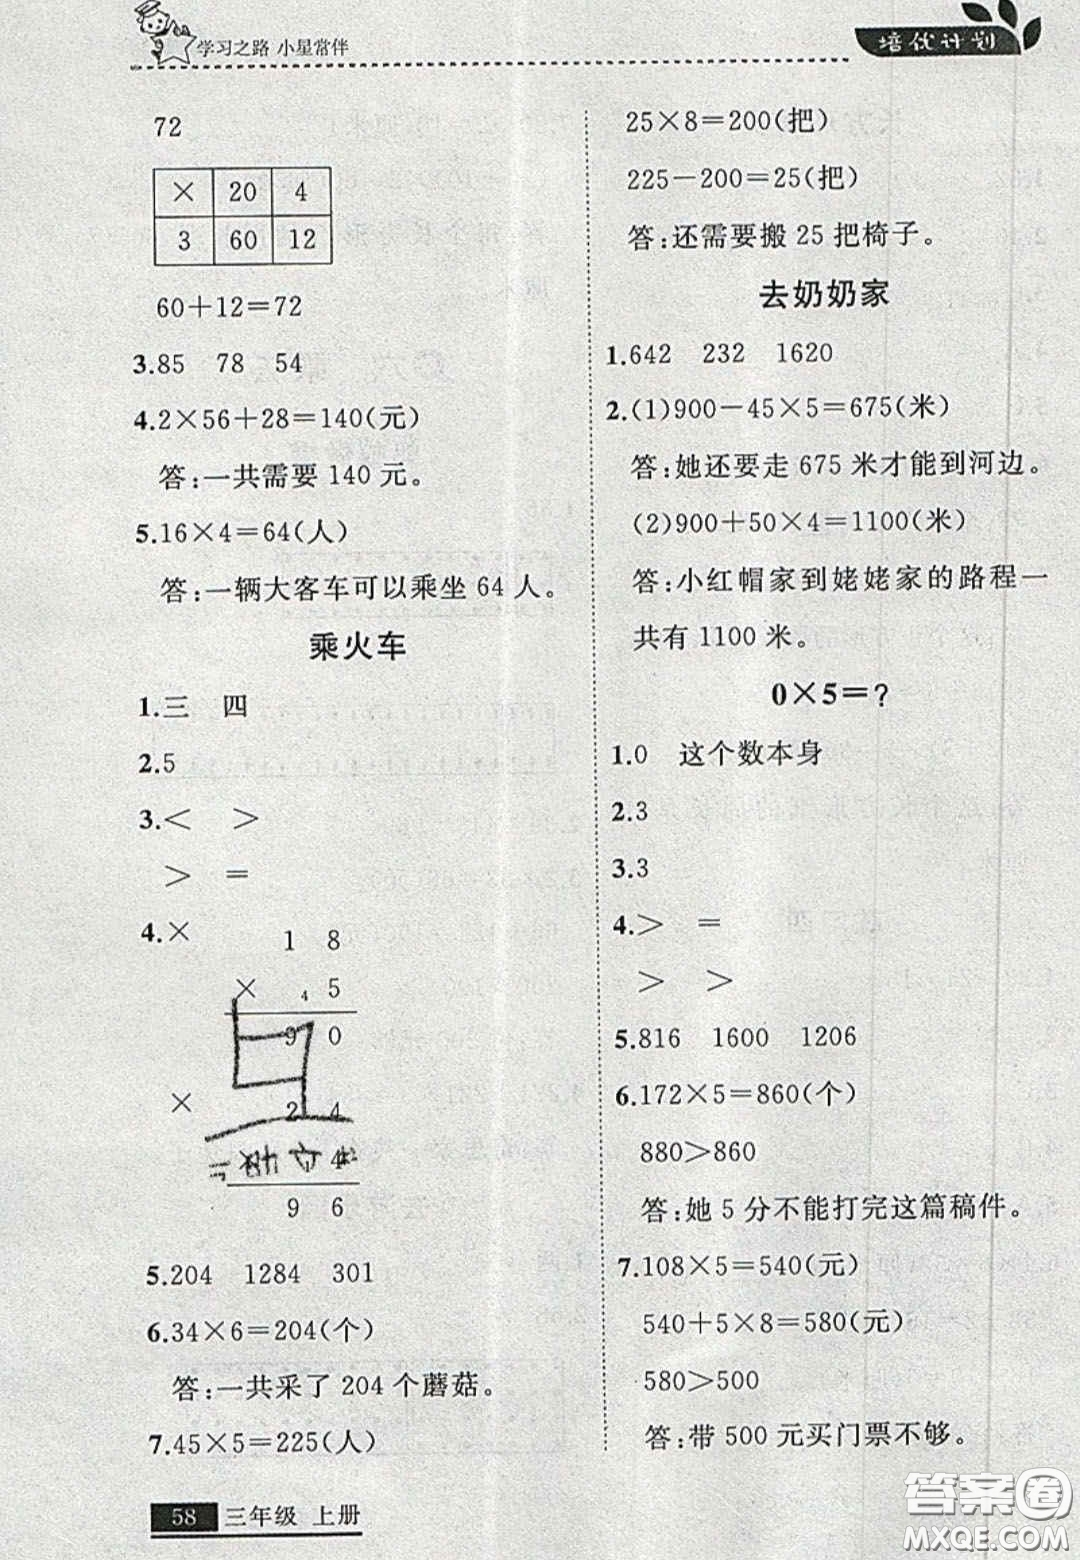 学习之路 小星常伴
培优计划
72
× 20 4
3 60 12
60+12=72
3.85 78 54
4.2×56+28=140(元)
答:一共需要 140 元。
5.16×4=64(人)
答:一辆大客车可以乘坐 64 人。
乘火车
1.三 四
2.5
3.< >
> =
4.×
1 8
× 4 5
9 0
×
2 4
4
9 6
5.204 1284 301
6.34×6=204(个)
答:一共采了 204 个蘑菇。
7.45×5=225(人)
25×8=200(把)
225-200=25(把)
答:还需要搬 25 把椅子。
去奶奶家
1.642 232 1620
2.(1)900-45×5=675(米)
答:她还要走 675 米才能到河边。
(2)900+50×4=1100(米)
答:小红帽家到姥姥家的路程一
共有 1100 米。
0×5=?
1.0 这个数本身
2.3
3.3
4.> =
> >
5.816 1600 1206
6.172×5=860(个)
880>860
答:她 5 分不能打完这篇稿件。
7.108×5=540(元)
540+5×8=580(元)
580>500
答:带 500 元买门票不够。
58 三年级 上册
答案圈
MXQE.COM